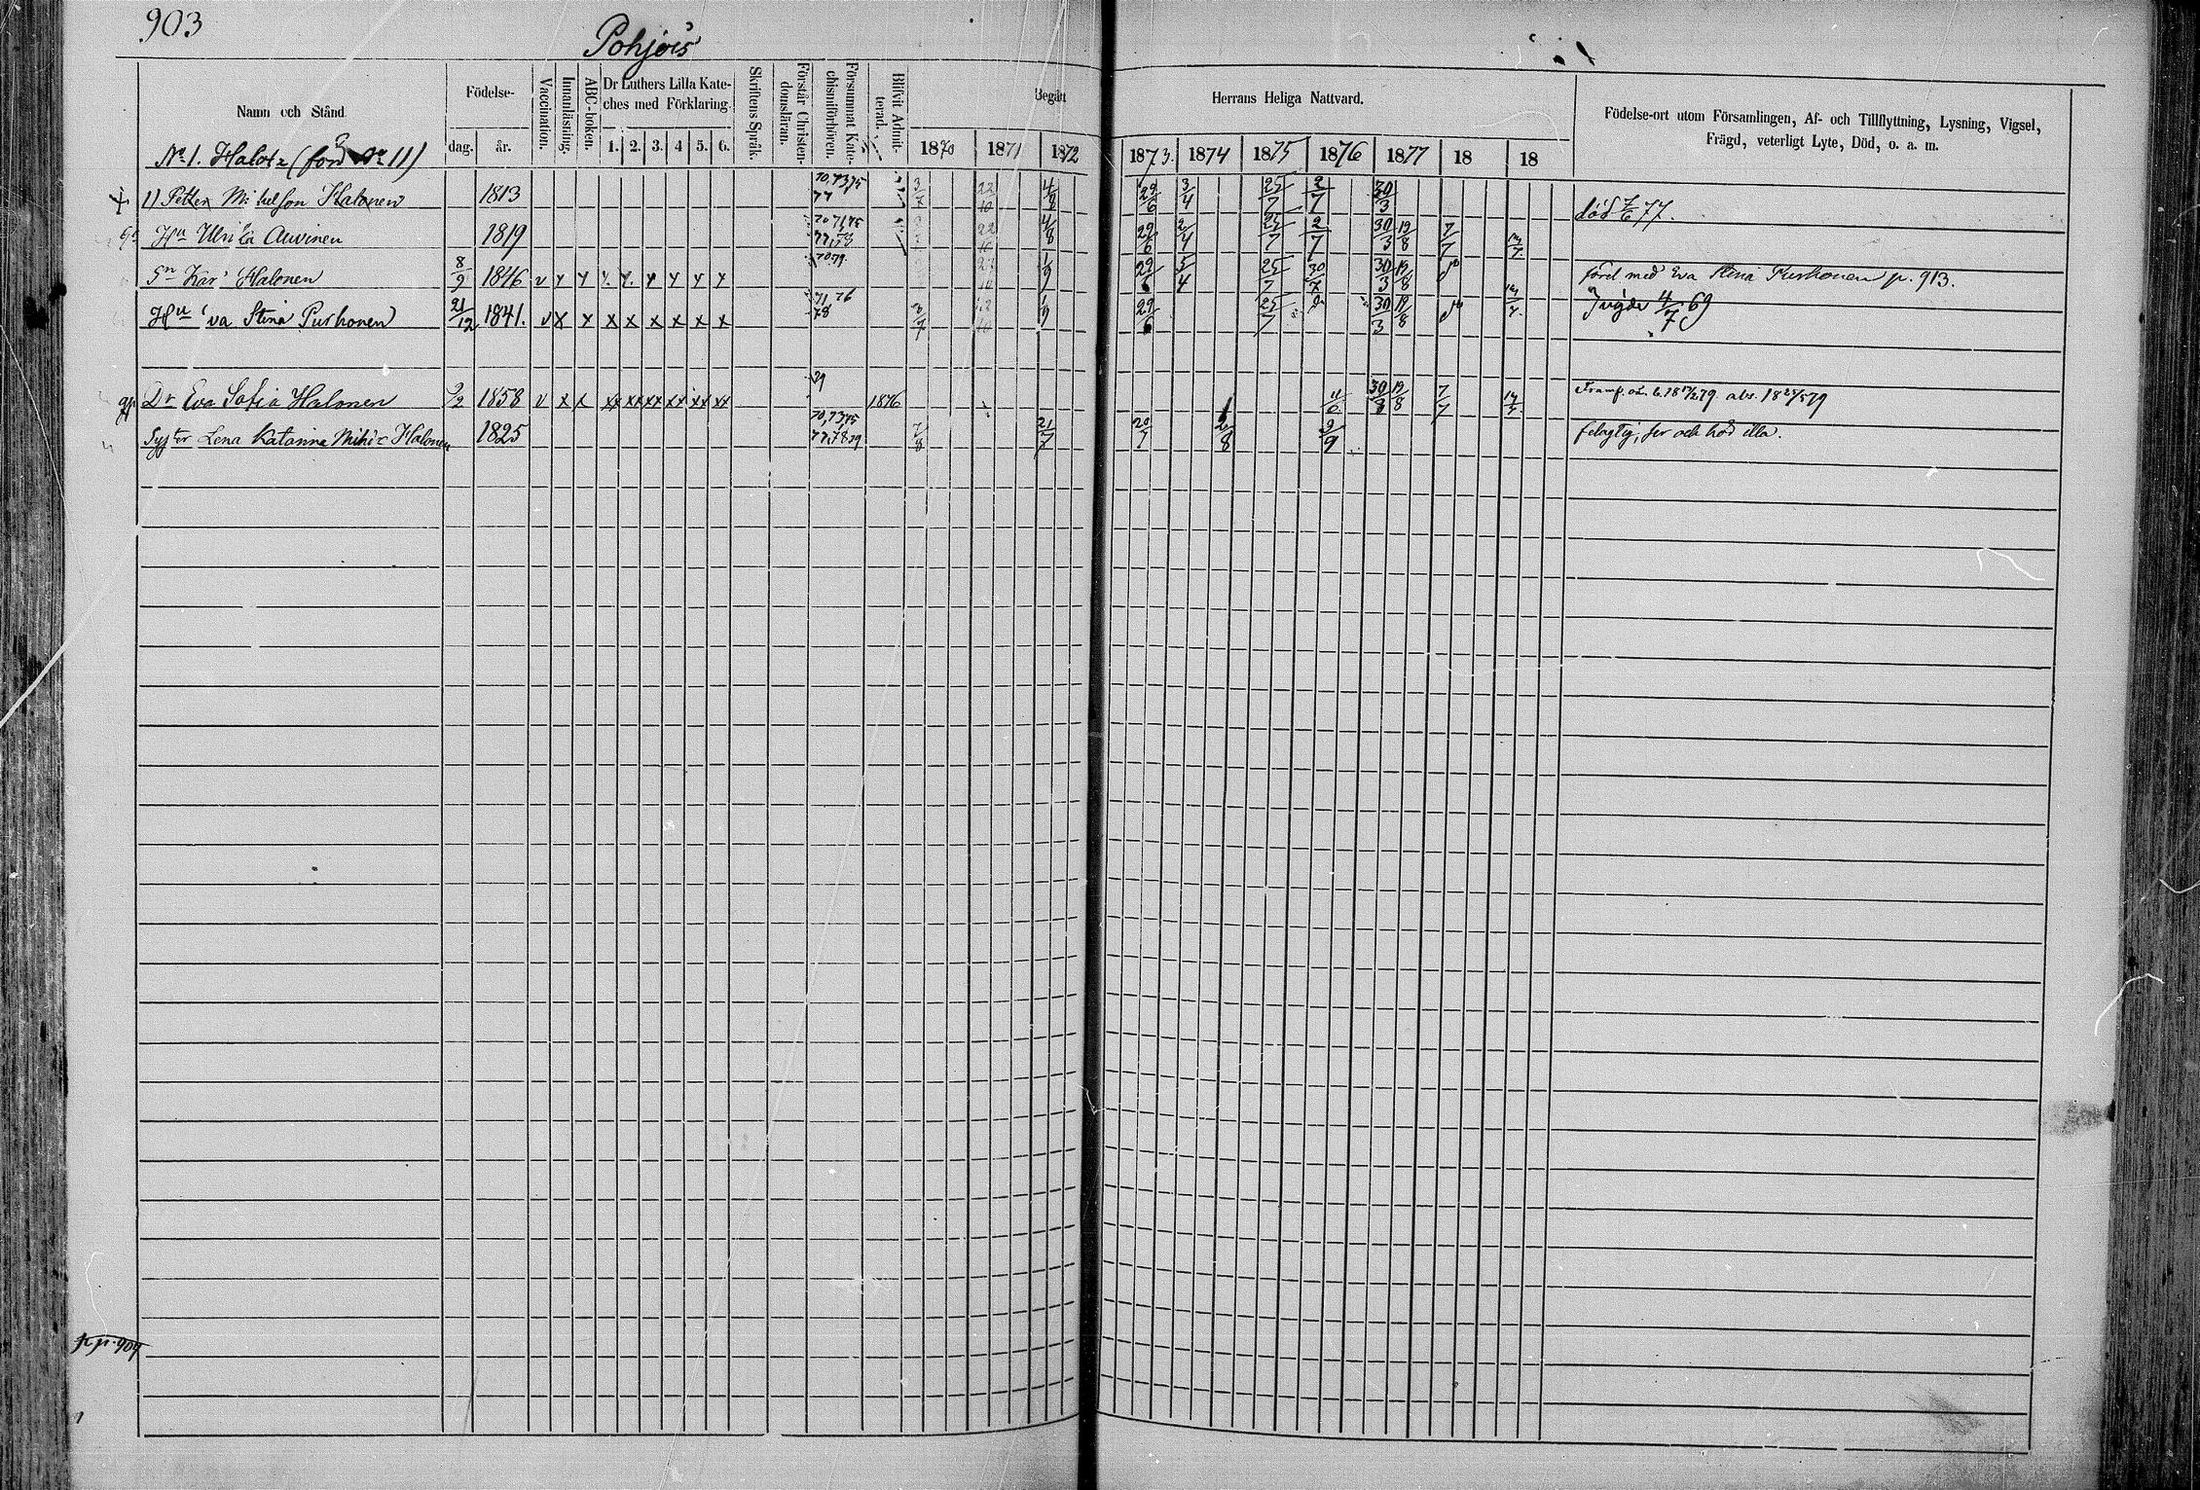 903
Pohjois
Namn och Stånd.
Födelse-
dag. år.
Vaccination.
Innanläsning.
ABC-boken.
Dr Luthers Lilla Kate-
ches med Förklaring.
1. 2. 3. 4 5. 6.
Skriftens Språk.
Förstår Christen-
domsläran.
Försummat Kate-
chismiförhören.
Blifvit Admit-
terad.
Begått Herrans Heliga Nattvard.
1870 1871 1872 1873. 1874 1875 1876 1877 18 18
Födelse-ort utom Församlingen, Af- och Tillflyttning, Lysning, Vigsel,
Frägd, veterligt Lyte, Död, o. a. m.
No 1. Halola (ford No 11)
1) Petter Michelson Halonen 1813 70,73,75 77 3/7 22/10 4/8 29/6 3/4 25/7 2/7 30/3 död 7/6 77.
Hu Ulrika Auvinen 1819 22/10 4/8 29/6 2/4 25/7 2/7 30/3 19/8 7/7 14/7
Sn Kar Halonen 8/9 1846 v 70 79. 1/9 29/6 5/4 25/7 30/7 30/3 19/8 do förel med Eva Stina Purhonen p. 913.
Hu Eva Stina Purhonen 21/12 1841. v x x x x x x x x 71, 76 78 3/7 1/9 29/6 25/7 do 30/3 19/8 do 14/7 Ivigde 4/7 69
Dr Eva Sofia Halonen 9/2 1858 v x x xx xx xx xx xx xx 79 1876 11/6 30/3 19/8 7/7 14/7
Syster Lena Katarina Mihi: Halonen 1825 70,73,75 77,78 79 7/8 21/7 20/7 2/8 9/9 felagtig, ser och hör illa.
p p. 904